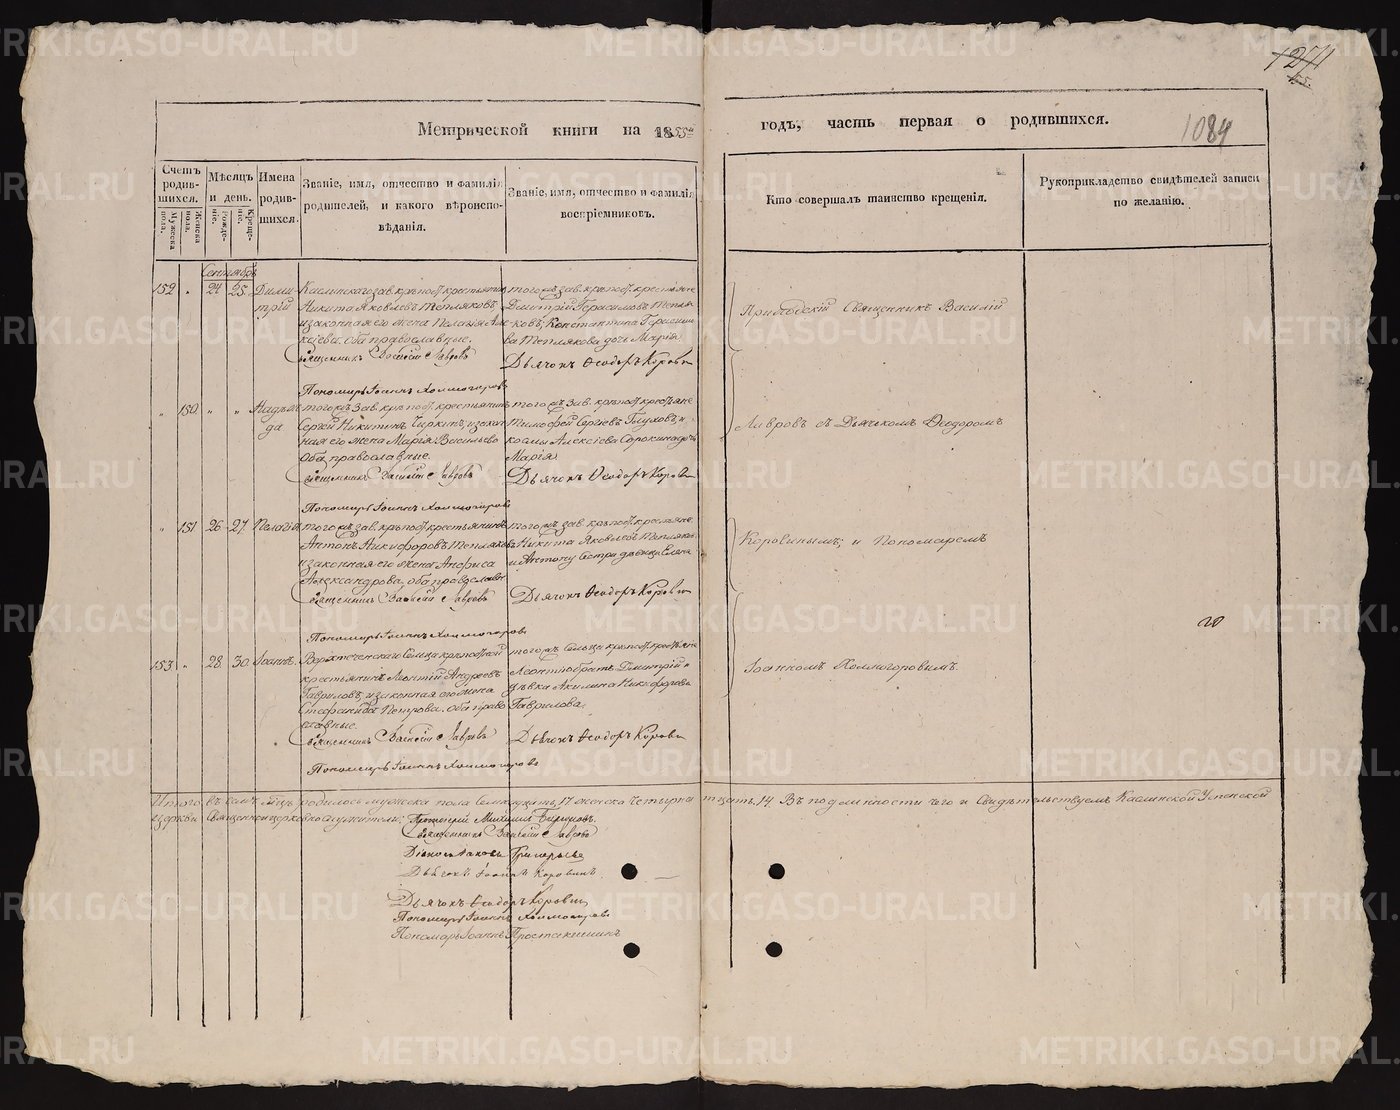 1271
55.
1084
Метрической книги на 1855й годъ, часть первая о родившихся.
Счетъ родив-шихся.
Мужеска пола.
Женска пола.
Мѣсяцъ и день.
Рожде-ніе.
Креще-ніе.
Имена родив-шихся.
Званіе, имя, отчество и фамилія родителей, и какого вѣроиспо-вѣданія.
Званіе, имя, отчество и фамилія воспріемниковъ.
Кто совершалъ таинство крещенія.
Рукоприкладство свидѣтелей записи по желанію.
Сентябрь
152 „ 24 25. Дими-
трій
Каслинскаго зав. крѣпост. крестьянинъ
Никита Яковлевъ Тепляковъ,
и законная его жена Пелагія Але
ксіева. оба православные.
Священникъ Василій Лавровъ
Пономарь Іоаннъ Холмогоровъ
того жъ зав. крѣпост. крестьяне
Дмитрій Герасимовъ Тепля-
ковъ, Константина Герасимо
ва Теплякова дочь Марія
Дьячокъ Ѳеодоръ Коровин
Приходскій Священникъ Василій
„ 150 „ „ Надеж
да
того жъ Зав. крѣпост. крестьянинъ
Сергій Никитинъ Чиркинъ, и закон
ная его жена Марія Васильево
Оба православные.
Священникъ Василій Лавровъ
Пономарь Іоаннъ Холмогоровъ
того жъ зав. крѣпост. крестьяне
Тимофей Сергѣевъ Глуховъ, и
космы Алексіева Сорокина дочь
Марія
Дьячокъ Ѳеодоръ Коровин
Лавровъ съ Дьячькомъ Ѳеодоромъ
„ 151 26 27. Пелагія
того жъ зав. крѣпост. крестьянинъ
Антонъ Никифоровъ Тепляковъ
и законная его жена Анфиса
Александрова, оба православн
Священникъ Василій Лавровъ
Пономарь Іоаннъ Холмогоровъ
того жъ зав. крѣпост. крестьяне
Никита Яковлевъ Тепляков
и Антону Сестра дѣвица Елена
Дьячокъ Ѳеодоръ Коровин
Коровинымъ; и Пономаремъ
153 „ 28. 30. Іоаннъ.
Верхтеченскаго Сельца крѣпостной
крестьянинъ Леонтій Андреевъ
Гавриловъ, и законная его жена
Стефанида Петрова. оба право
славные.
Священникъ Василій Лавровъ
Пономарь Іоаннъ Холмогоровъ
того жъ Сельца крѣпост. крестьяне
Леонтію братъ Дмитрій и
дѣвка Акилина Никифорова
Гаврилова.
Дьячокъ Ѳеодоръ Коровин
Іоанномъ Холмогоровымъ.
Итого въ семъ м̃цѣ родилось мужеска пола Семнадцать, 17 женска Четырнатцать. 14 Въ подлинности чего и Свидѣтельствуемъ Каслинской Успенской
Церкви Священноцерковнослужители:
Протоіерей Михаилъ
Священникъ Василій Лавровъ
Діаконъ Іаковъ Григорьевъ
Дьячокъ Іоаннъ Коровинъ
Дьячокъ Ѳеодоръ Коровин
Пономарь Іоаннъ Холмогоровъ
Пономарь Іоаннъ
METRIKI.GASO-URAL.RU